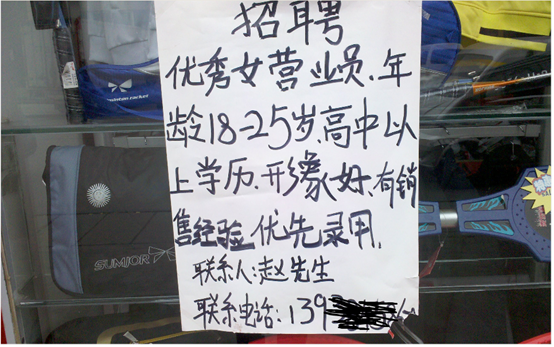 招聘
优秀女营业员、年
龄18-25岁,高中以
上学历、形缘好、有销
售经验优先录用,
联系人:赵先生
联系电话:139
SUMJOR